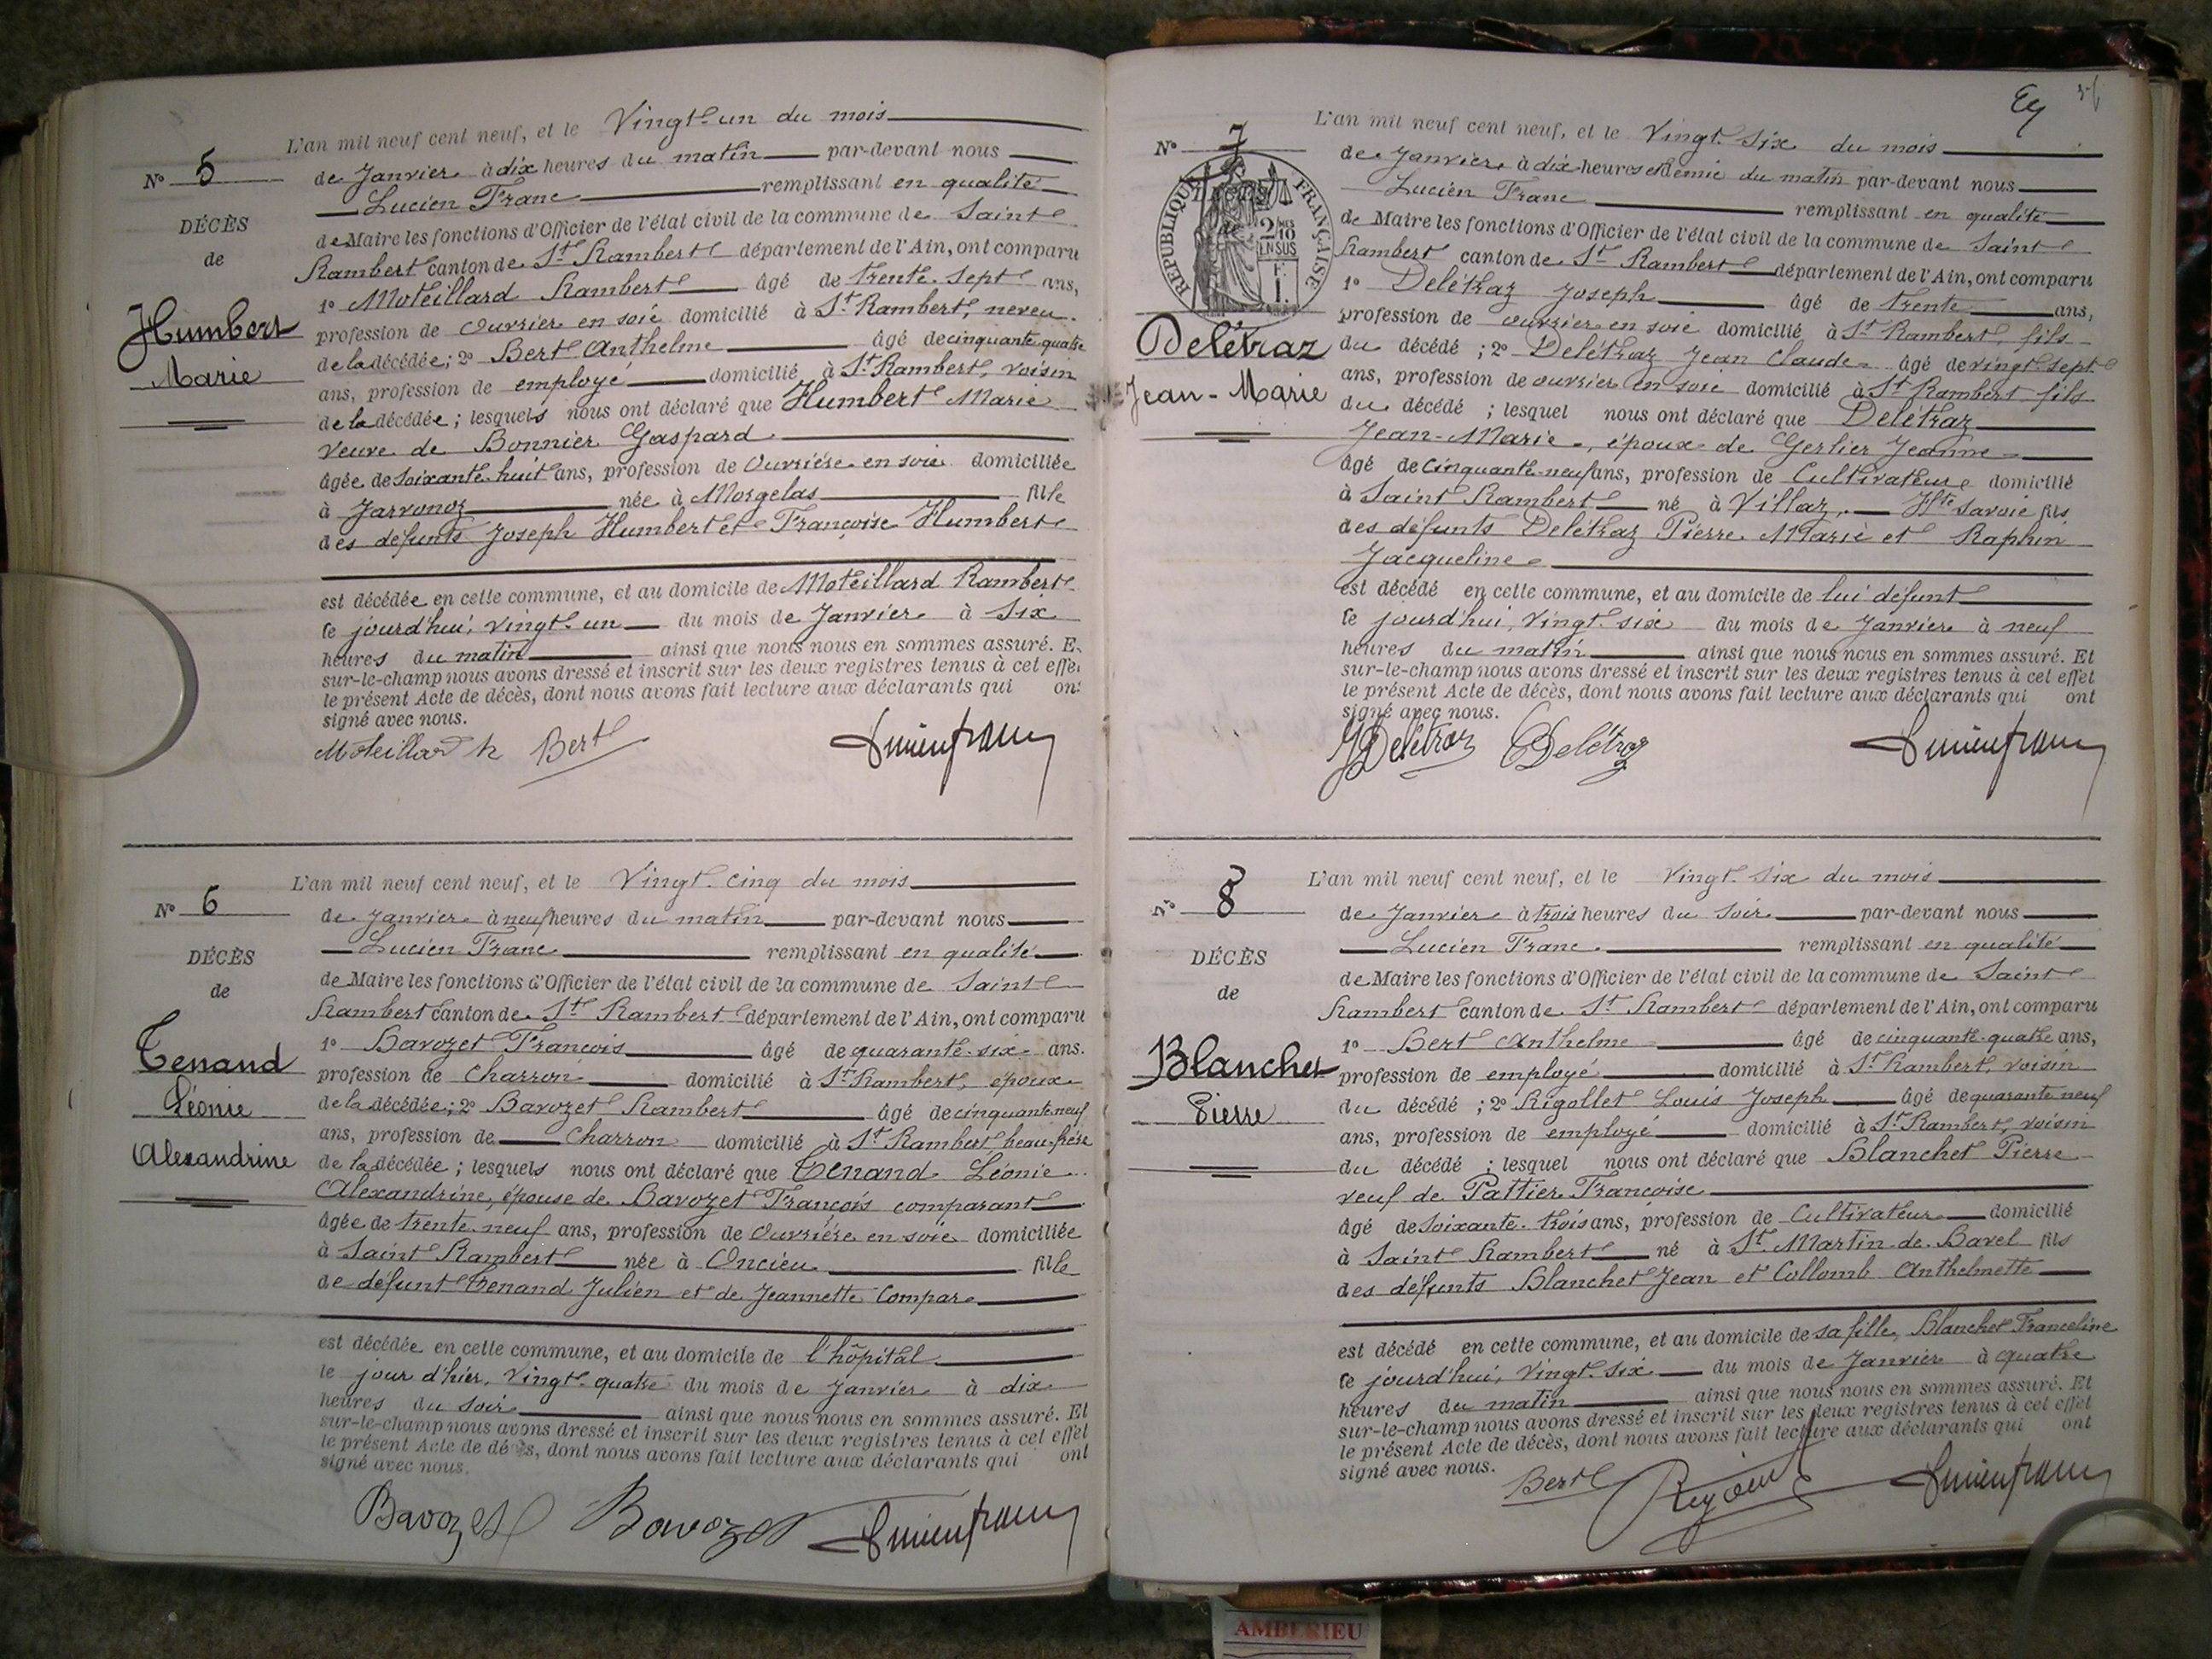 L'an mil neuf cent neuf, et le Vingt-un du mois
N° 5
de Janvier à dix heures du matin par-devant nous
Lucien Franc remplissant en qualité
DÉCÈS
de Maire les fonctions d'Officier de l'état civil de la commune de Saint
de
Rambert canton de St Rambert département de l'Ain, ont comparu
1° Moteillard Rambert âgé de trente-sept ans,
Humbert
profession de ouvrier en soie domicilié à St Rambert, neveu
de la décédée; 2° Bert Anthelme âgé de cinquante quatre
Marie
ans, profession de employé domicilié à St Rambert, voisin
de la décédée; lesquels nous ont déclaré que Humbert Marie
veuve de Bonnier Gaspard
âgée de soixante-huit ans, profession de Ouvrière en soie domiciliée
à Javronoz née à Morgelas fille
des défunts Joseph Humbert et Françoise Humbert
est décédée en cette commune, et au domicile de Moteillard Rambert
le jourd'hui, vingt-un du mois de Janvier à six
heures du matin ainsi que nous nous en sommes assuré. E
sur-le-champ nous avons dressé et inscrit sur les deux registres tenus à cet effe
le présent Acte de décès, dont nous avons fait lecture aux déclarants qui on
signé avec nous.
Moteillard R Bert Lucien franc
L'an mil neuf cent neuf, et le Vingt-cinq du mois
N° 6
de Janvier à neuf heures du matin par-devant nous
Lucien Franc remplissant en qualité
DÉCÈS
de Maire les fonctions d'Officier de l'état civil de la commune de Saint
de
Rambert canton de St Rambert département de l'Ain, ont comparu
1° Bavozet François âgé de quarante-six ans.
Tenand
profession de Charron domicilié à St Rambert, époux
Léonie
de la décédée; 2° Bavozet Rambert âgé de cinquante neuf
ans, profession de Charron domicilié à St Rambert, beau-frère
Alexandrine
de la décédée; lesquels nous ont déclaré que Tenand Léonie
Alexandrine, épouse de Bavozet François comparant
âgée de trente-neuf ans, profession de Ouvrière en soie domiciliée
à Saint Rambert née à Oncieu fille
de défunt Tenand Julien et de Jeannette Compare
est décédée en cette commune, et au domicile de l'hôpital
le jour d'hier, vingt-quatre du mois de Janvier à dix
heures du soir ainsi que nous nous en sommes assuré. Et
sur-le-champ nous avons dressé et inscrit sur les deux registres tenus à cet effet
le présent Acte de décès, dont nous avons fait lecture aux déclarants qui ont
signé avec nous.
Bavozet Bavozet Lucien franc
L'an mil neuf cent neuf, et le Vingt-six du mois
N° 7
de Janvier à dix heures et demie du matin par-devant nous
Lucien Franc remplissant en qualité
RÉPUBLIQUE FRANÇAISE
2/10 EN SUS
de Maire les fonctions d'Officier de l'état civil de la commune de Saint
Rambert canton de St Rambert département de l'Ain, ont comparu
1° Delétraz Joseph âgé de trente ans,
profession de ouvrier en soie domicilié à St Rambert, fils
Delétraz
du décédé; 2° Delétraz Jean Claude âgé de vingt-sept
Jean-Marie
ans, profession de ouvrier en soie domicilié à St Rambert fils
du décédé; lesquel nous ont déclaré que Delétraz
Jean-Marie, époux de Gerlier Jeanne
âgé de cinquante-neuf ans, profession de Cultivateur domicilié
à Saint Rambert né à Villaz, Hte Savoie fils
des défunts Delétraz Pierre Marie et Raphin
Jacqueline
est décédé en cette commune, et au domicile de lui défunt
le jourd'hui, vingt-six du mois de Janvier à neuf
heures du matin ainsi que nous nous en sommes assuré. Et
sur-le-champ nous avons dressé et inscrit sur les deux registres tenus à cet effet
le présent Acte de décès, dont nous avons fait lecture aux déclarants qui ont
signé avec nous.
JDelétraz Delétraz Lucien franc
L'an mil neuf cent neuf, et le Vingt-six du mois
N° 8
de Janvier à trois heures du soir par-devant nous
Lucien Franc remplissant en qualité
DÉCÈS
de Maire les fonctions d'Officier de l'état civil de la commune de Saint
de
Rambert canton de St Rambert département de l'Ain, ont comparu
1° Bert Anthelme âgé de cinquante-quatre ans,
Blanchet
profession de employé domicilié à St Rambert, voisin
Pierre
du décédé; 2° Rigollet Louis Joseph âgé de quarante neuf
ans, profession de employé domicilié à St Rambert, voisin
du décédé; lesquel nous ont déclaré que Blanchet Pierre
veuf de Pattier Françoise
âgé de soixante-trois ans, profession de Cultivateur domicilié
à Saint Rambert né à St Martin-de-Bavel fils
des défunts Blanchet Jean et Collomb Anthelmette
est décédé en cette commune, et au domicile de sa fille, Blanchet Franceline
le jourd'hui, vingt-six du mois de Janvier à quatre
heures du matin ainsi que nous nous en sommes assuré. Et
sur-le-champ nous avons dressé et inscrit sur les deux registres tenus à cet effet
le présent Acte de décès, dont nous avons fait lecture aux déclarants qui ont
signé avec nous.
Bert Lucien franc
AMBERIEU